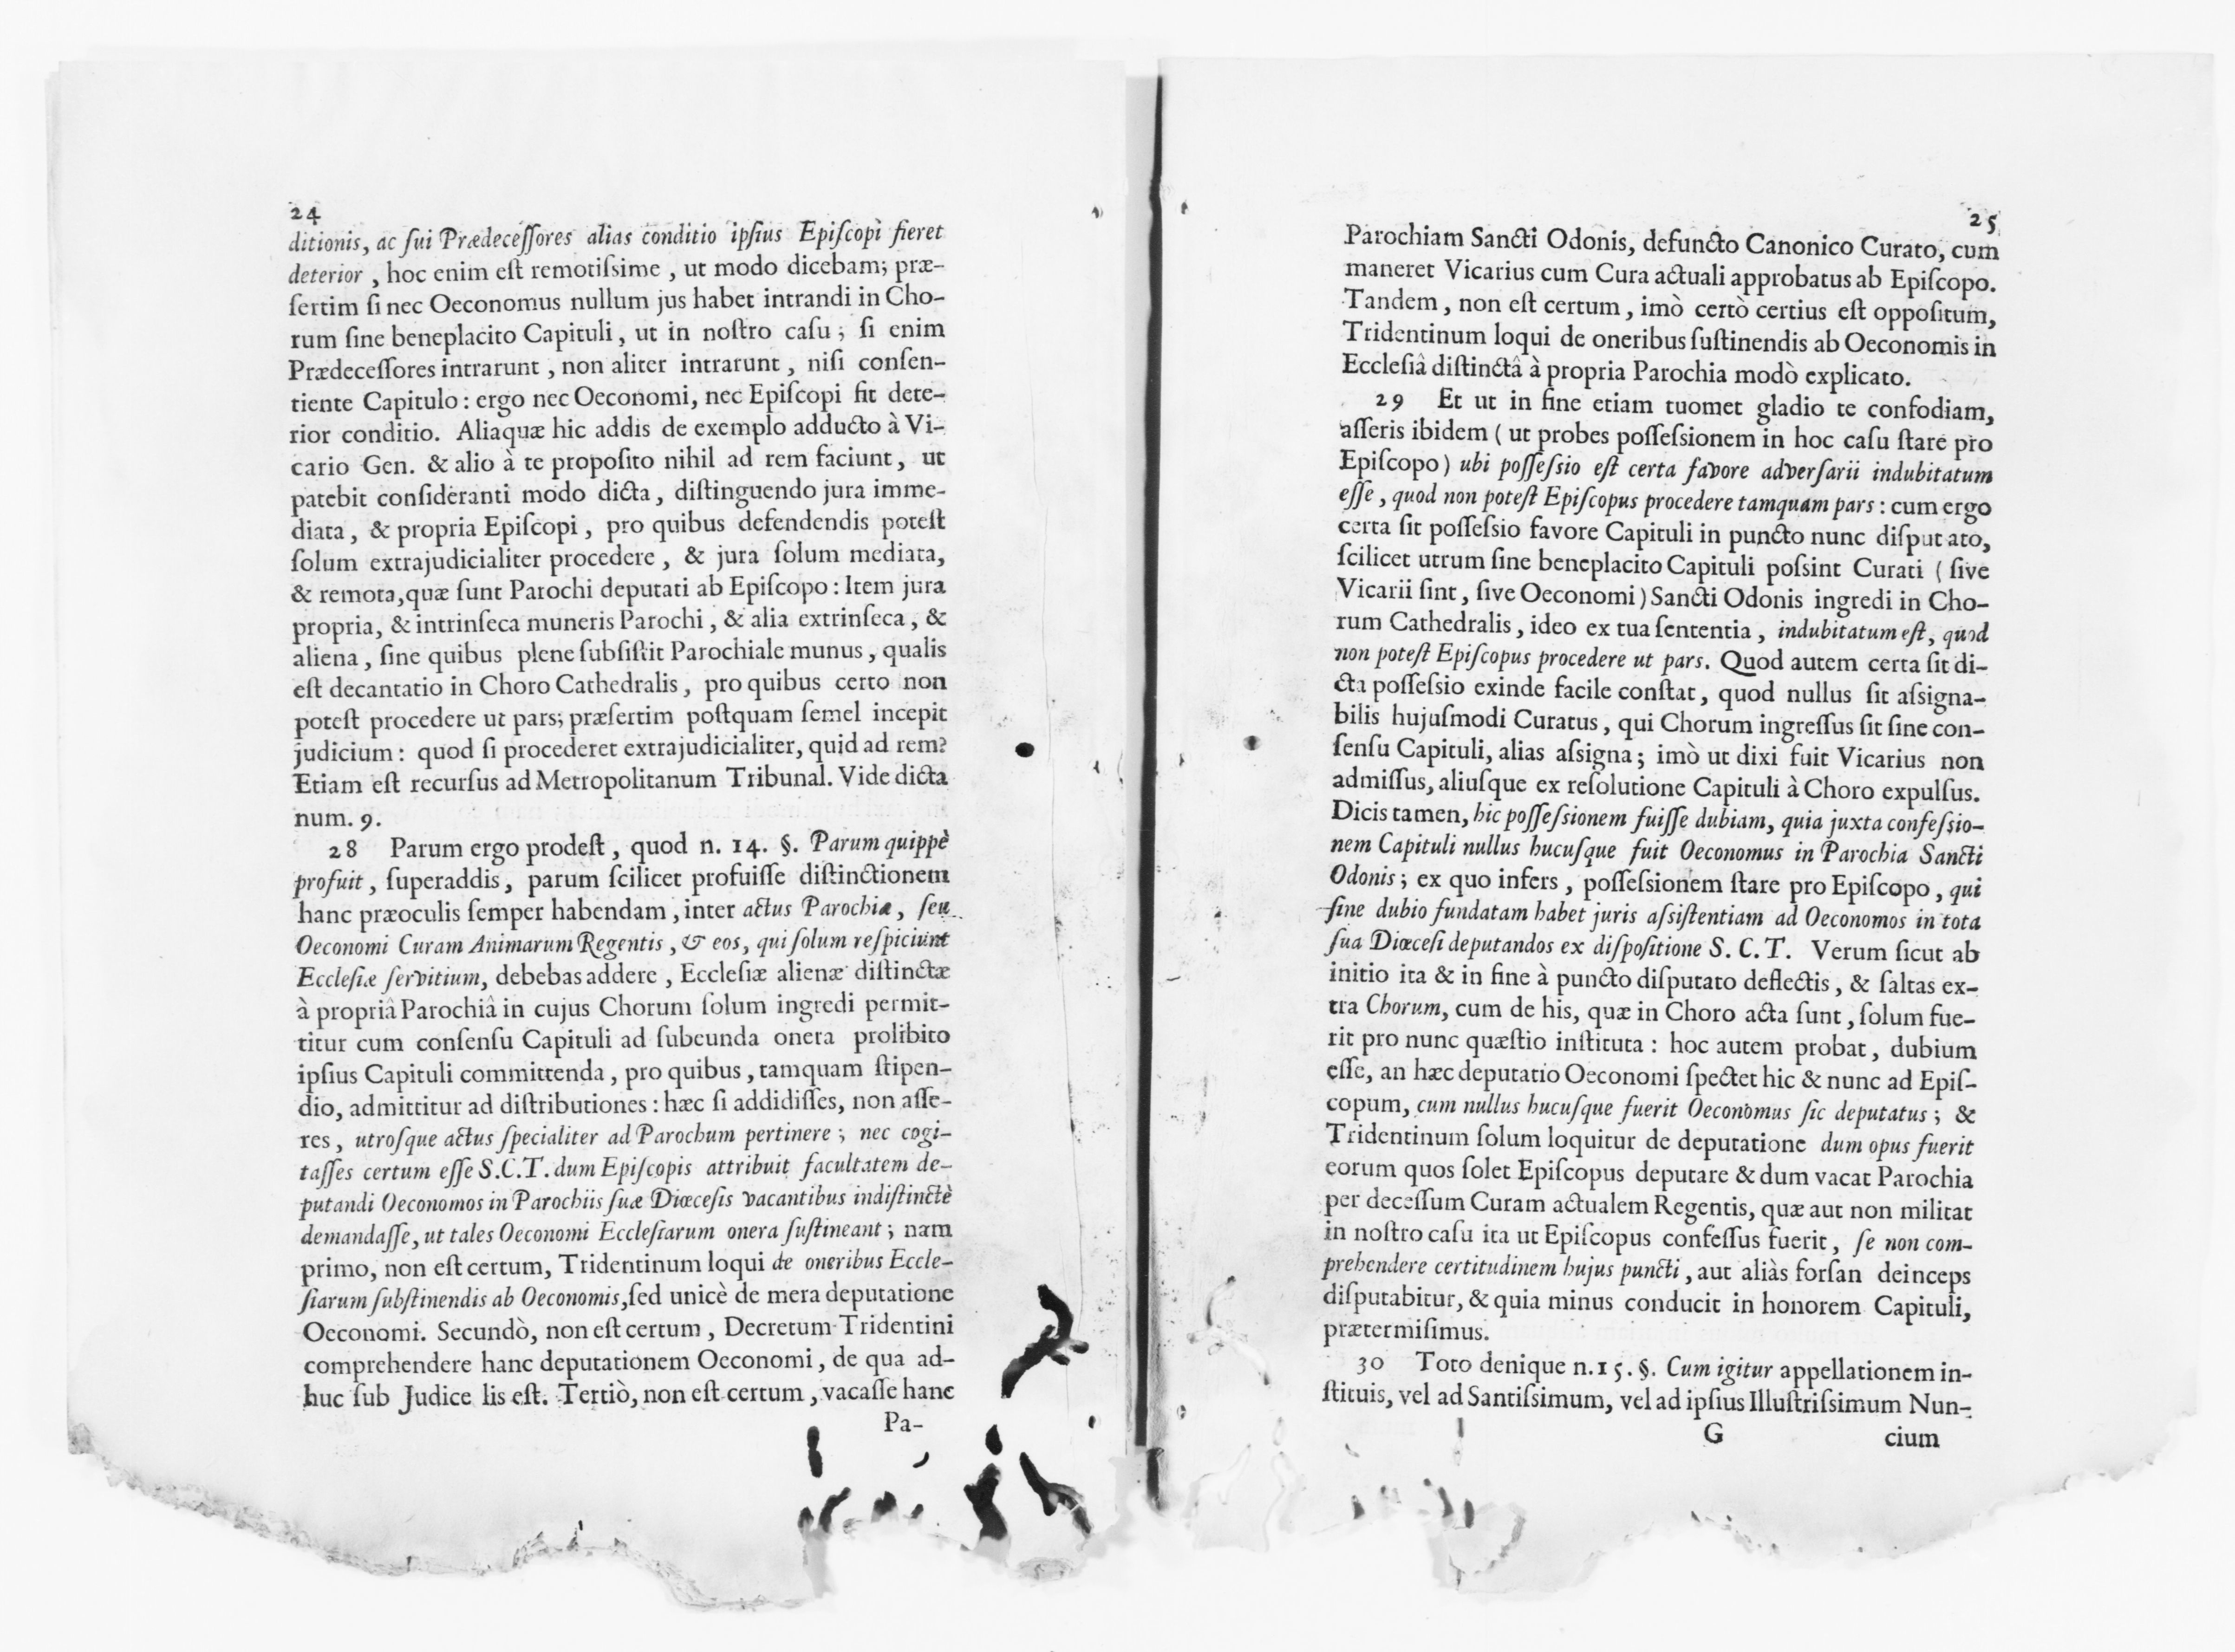 24
ditionis, ac ſui Prædeceſſores alias conditio ipſius Epiſcopì fieret
deterior, hoc enim eſt remotiſsime, ut modo dicebam; præ-
ſertim ſi nec Oeconomus nullum jus habet intrandi in Cho-
rum ſine beneplacito Capituli, ut in noſtro caſu; ſi enim
Prædeceſſores intrarunt, non aliter intrarunt, niſi conſen-
tiente Capitulo: ergo nec Oeconomi, nec Epiſcopi fit dete-
rior conditio. Aliaquæ hic addis de exemplo adducto à Vi-
cario Gen. & alio à te propoſito nihil ad rem faciunt, ut
patebit conſideranti modo dicta, diſtinguendo jura imme-
diata, & propria Epiſcopi, pro quibus defendendis poteſt
ſolum extrajudicialiter procedere, & jura ſolum mediata,
& remota, quæ ſunt Parochi deputati ab Epiſcopo: Item jura
propria, & intrinſeca muneris Parochi, & alia extrinſeca, &
aliena, ſine quibus plene ſubſiſtit Parochiale munus, qualis
eſt decantatio in Choro Cathedralis, pro quibus certo non
poteſt procedere ut pars; præſertim poſtquam ſemel incepit
judicium: quod ſi procederet extrajudicialiter, quid ad rem?
Etiam eſt recurſus ad Metropolitanum Tribunal. Vide dicta
num. 9.
28 Parum ergo prodeſt, quod n. 14. §. Parum quippè
profuit, ſuperaddis, parum ſcilicet profuiſſe diſtinctionem
hanc præoculis ſemper habendam, inter actus Parochiæ, ſeu
Oeconomi Curam Animarum Regentis, & eos, qui ſolum reſpiciunt
Eccleſiæ ſervitium, debebas addere, Eccleſiæ alienæ diſtinctæ
à propriâ Parochiâ in cujus Chorum ſolum ingredi permit-
titur cum conſenſu Capituli ad ſubeunda onera prolibito
ipſius Capituli committenda, pro quibus, tamquam ſtipen-
dio, admittitur ad diſtributiones: hæc ſi addidiſſes, non aſſe-
res, utroſque actus ſpecialiter ad Parochum pertinere; nec cogi-
taſſes certum eſſe S.C.T. dum Epiſcopis attribuit facultatem de-
putandi Oeconomos in Parochiis ſuæ Diœceſis vacantibus indiſtinctè
demandaſſe, ut tales Oeconomi Eccleſiarum onera ſuſtineant; nam
primo, non eſt certum, Tridentinum loqui de oneribus Eccle-
ſiarum ſubſtinendis ab Oeconomis, ſed unicè de mera deputatione
Oeconomi. Secundò, non eſt certum, Decretum Tridentini
comprehendere hanc deputationem Oeconomi, de qua ad-
huc ſub Judice lis eſt. Tertiò, non eſt certum, vacaſſe hanc
Pa-
25
Parochiam Sancti Odonis, defuncto Canonico Curato, cum
maneret Vicarius cum Cura actuali approbatus ab Epiſcopo.
Tandem, non eſt certum, imò certò certius eſt oppoſitum,
Tridentinum loqui de oneribus ſuſtinendis ab Oeconomis in
Eccleſiâ diſtinctâ à propria Parochia modò explicato.
29 Et ut in fine etiam tuomet gladio te confodiam,
aſſeris ibidem (ut probes poſſeſsionem in hoc caſu ſtare pro
Epiſcopo) ubi poſſeſsio eſt certa favore adverſarii indubitatum
eſſe, quod non poteſt Epiſcopus procedere tamquam pars: cum ergo
certa ſit poſſeſsio favore Capituli in puncto nunc diſputato,
ſcilicet utrum ſine beneplacito Capituli poſsint Curati (ſive
Vicarii ſint, ſive Oeconomi) Sancti Odonis ingredi in Cho-
rum Cathedralis, ideo ex tua ſententia, indubitatum eſt, quod
non poteſt Epiſcopus procedere ut pars. Quod autem certa ſit di-
cta poſſeſsio exinde facile conſtat, quod nullus ſit aſsigna-
bilis hujuſmodi Curatus, qui Chorum ingreſſus ſit ſine con-
ſenſu Capituli, alias aſsigna; imò ut dixi fuit Vicarius non
admiſſus, aliuſque ex reſolutione Capituli à Choro expulſus.
Dicis tamen, hic poſſeſsionem fuiſſe dubiam, quia juxta confeſsio-
nem Capituli nullus hucuſque fuit Oeconomus in Parochia Sancti
Odonis; ex quo infers, poſſeſsionem ſtare pro Epiſcopo, qui
ſine dubio fundatam habet juris aſsiſtentiam ad Oeconomos in tota
ſua Diœceſi deputandos ex diſpoſitione S. C. T. Verum ſicut ab
initio ita & in fine à puncto diſputato deflectis, & ſaltas ex-
tra Chorum, cum de his, quæ in Choro acta ſunt, ſolum fue-
rit pro nunc quæſtio inſtituta: hoc autem probat, dubium
eſſe, an hæc deputatio Oeconomi ſpectet hic & nunc ad Epiſ-
copum, cum nullus hucuſque fuerit Oeconomus ſic deputatus; &
Tridentinum ſolum loquitur de deputatione dum opus fuerit
eorum quos ſolet Epiſcopus deputare & dum vacat Parochia
per deceſſum Curam actualem Regentis, quæ aut non militat
in noſtro caſu ita ut Epiſcopus confeſſus fuerit, ſe non com-
prehendere certitudinem hujus puncti, aut aliàs forſan deinceps
diſputabitur, & quia minus conducit in honorem Capituli,
prætermiſimus.
30 Toto denique n. 15. §. Cum igitur appellationem in-
ſtituis, vel ad Santiſsimum, vel ad ipſius Illuſtriſsimum Nun-
G cium